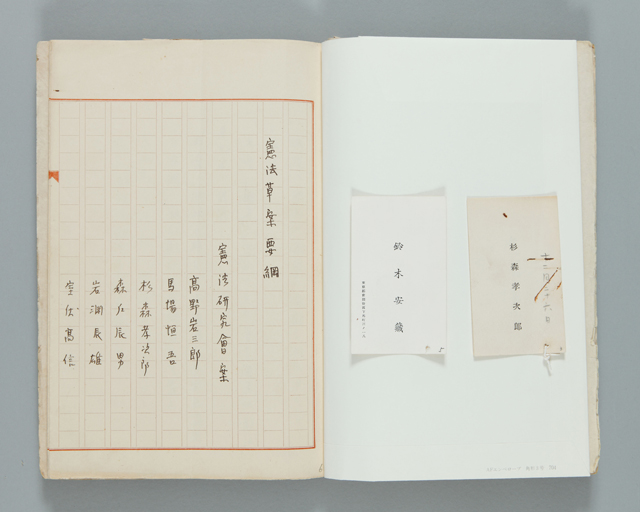 杉森孝次郎
十二月二十六日
鈴木安蔵
憲法草案要綱
憲法研究會案
高野岩三郎
馬場恒吾
杉森孝次郎
森戸辰男
岩淵辰雄
室伏高信